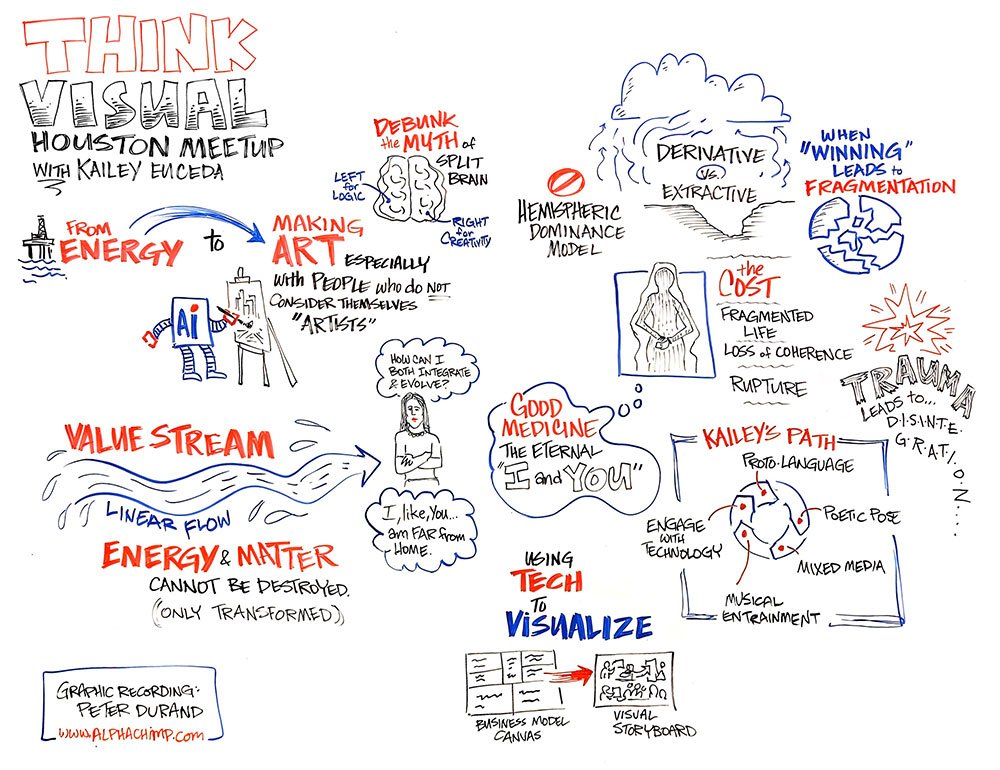 THINK
VISUAL
HOUSTON MEETUP
WITH KAILEY EUCEDA
FROM
ENERGY
to
MAKING
ART ESPECIALLY
with PEOPLE who do NOT
CONSIDER THEMSELVES
"ARTISTS"
Ai
DEBUNK
the MYTH of
SPLIT
BRAIN
LEFT
for
LOGIC
RIGHT
for
CREATIVITY
HEMISPHERIC
DOMINANCE
MODEL
DERIVATIVE
VS.
EXTRACTIVE
WHEN
"WINNING"
LEADS to
FRAGMENTATION
the
COST
FRAGMENTED
LIFE
LOSS of COHERENCE
RUPTURE
TRAUMA
LEADS to...
D.I.S.I.N.T.E.
G.R.A.T.I.
O.
N.
...
HOW CAN I
BOTH INTEGRATE
& EVOLVE?
I, like, YOU...
am FAR from
HOME.
VALUE STREAM
LINEAR FLOW
ENERGY & MATTER
CANNOT BE DESTROYED.
(ONLY TRANSFORMED)
GOOD
MEDICINE
THE ETERNAL
"I and YOU"
KAILEY'S PATH
PROTO-LANGUAGE
POETIC POSE
MIXED MEDIA
MUSICAL
ENTRAINMENT
ENGAGE
WITH
TECHNOLOGY
USING
TECH
TO
VISUALIZE
BUSINESS MODEL
CANVAS
VISUAL
STORYBOARD
GRAPHIC RECORDING:
PETER DURAND
www.ALPHACHIMP.com